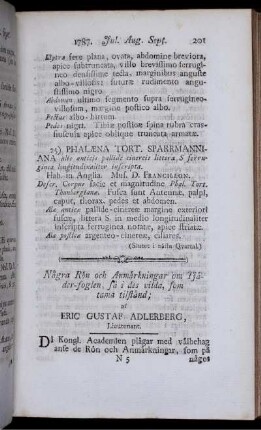 1787. Jul. Aug. Sept. 201
Elytra fere plana, ovata, abdomine breviora,
apice subtruncata, villo brevissimo ferrugi-
neo densissime tecta, marginibus anguste
albo-villosis: suturæ rudimento angu-
stissimo nigro.
Abdomen ultimo segmento supra ferrugineo-
villosum, margine postico albo.
Pectus albo-hirtum.
Pedes nigri. Tibiæ posticæ spina rubra
apice oblique truncata armatæ.
25) PHALÆNA TORT. SPARRMANNI-
ANA alis anticis pallide cinereis littera S ferru-
ginea longitudinaliter inscripta.
Hab. in Anglia. Mus. D. FRANCILLON.
Descr. Corpus facie et magnitudine Phal. Tort.
Thunbergianæ. Fusca sunt Antennæ, palpi,
caput, thorax, pedes et abdomen.
Alæ anticæ pallide-cinereæ margine exteriori
fusco, littera S in medio longitudinaliter
inscripta ferruginea notatæ, apice striatæ.
Alæ posticæ argenteo-cinereæ, ciliares.
(Slutet i nästa Qvartal.)
Några Rön och Anmärkningar om Tjä-
der-foglen, så i dess vilda, som
tama tilstånd;
af
ERIC GUSTAF ADLERBERG,
Lieutenant.
Då Kongl. Academien plägar med välbehag
anse de Rön och Anmärkningar, som på
N 5 något